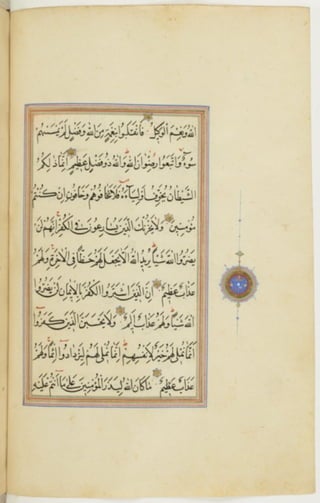 الله ونعم الوكيل فانقلبوا بنعمة من الله وفضل لم يمسسهم
سوء واتبعوا رضوان الله والله ذو فضل عظيم انما ذلكم
الشيطان يخوف اولياءه فلا تخافوهم وخافون ان كنتم
مؤمنين ولا يحزنك الذين يسارعون في الكفر انهم لن
يضروا الله شيئا يريد الله الا يجعل لهم حظا في الاخرة ولهم
عذاب عظيم ان الذين اشتروا الكفر بالايمان لن يضروا
الله شيئا ولهم عذاب اليم ولا يحسبن الذين كفروا
انما نملي لهم خير لانفسهم انما نملي لهم ليزدادوا اثما ولهم
عذاب مهين ما كان الله ليذر المؤمنين على ما انتم عليه